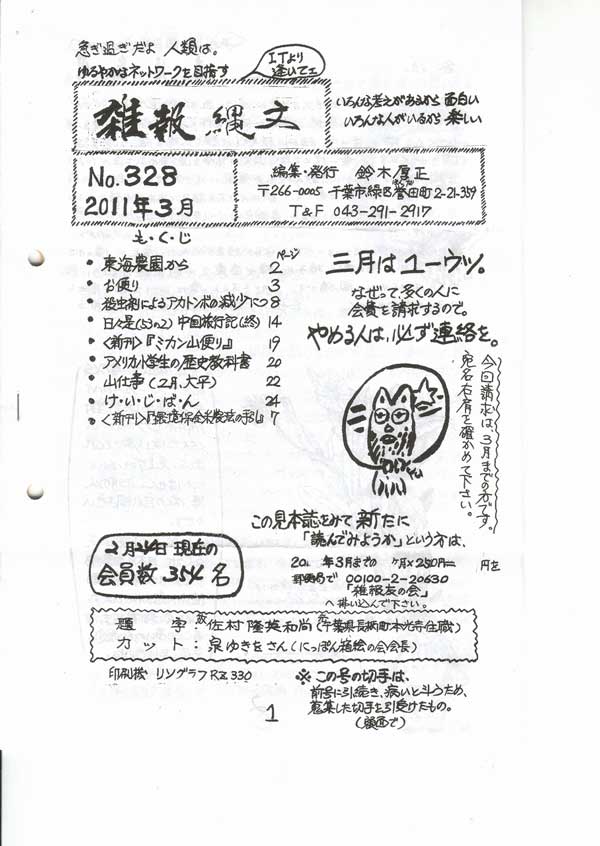 急ぎ過ぎだよ 人類は。
ゆるやかなネットワークを目指す
ITより
逢いてェ
雑報 縄文
いろんな考えがあるから 面白い
いろんな人がいるから 楽しい
No. 328
2011年3月
編集・発行 鈴木厚正
〒266-0005 千葉市緑区誉田町2-21-359
T&F 043-291-2917
も・く・じ
ページ
• 東海農園から 2
• お便り 3
• 殺虫剤によるアカトンボの減少につ 8
• 日々是(53の2) 中国旅行記(終) 14
• <新刊>『ミカン山便り』 19
• アメリカ小学生の歴史教科書 20
• 山仕事(2月、大平) 22
• け・い・じ・ば・ん 24
• <新刊>『環境保全米農法の手引』 7
三月はユーウツ。
なぜって、多くの人に
会費を請求するので。
やめる人は、必ず連絡を。
今回請求は、3月までの方です。
宛名右肩を確かめて下さい。
この見本誌をみて 新たに
「読んでみようか」という方は、
201 年3月までの ヶ月×250円= 円を
郵便局で 00100-2-20630
「雑報友の会」
へ払い込んで下さい。
2月24日 現在の
会員数 354 名
題 字:故 佐村隆英和尚(元千葉県長柄町本光寺住職)
カット:泉ゆきをさん(にっぽん漫絵の会会長)
印刷機 リソグラフRZ330
※ この号の切手は、
前号に引続き、病いと斗うため、
蒐集した切手を引受けたもの。
(額面で)
1